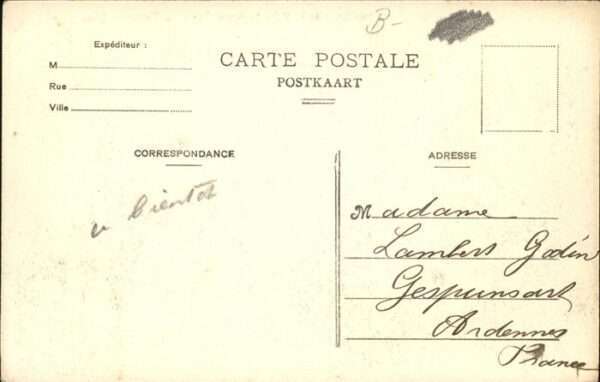 B-
Expéditeur :
CARTE POSTALE
M
POSTKAART
Rue
Ville
CORRESPONDANCE
ADRESSE
a bientot
Madame
Lambert Godin
Gespunsart
Ardennes
France